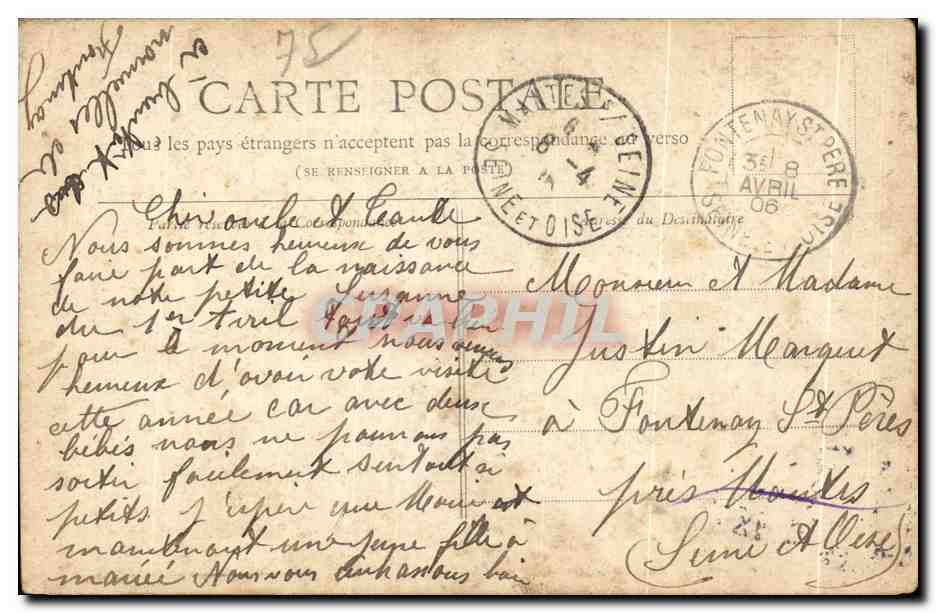 75
CARTE POSTALE
Tous les pays étrangers n'acceptent pas la correspondance au verso
(SE RENSEIGNER A LA POSTE)
Partie réservée à la Correspondance
Adresse du Destinataire
MANTES S/ SEINE
6
8 -4
SEINE ET OISE
FONTENAY ST PÈRE
3E 8
AVRIL
06
SEINE ET OISE
Cher oncle et Tante
Nous sommes heureux de vous
faire part de la naissance
de notre petite Suzanne
du 1er Avril tout va bien
pour le moment nous serions
heureux d'avoir votre visite
cette année car avec deux
bébés nous ne pouvons pas
sortir facilement surtout si
petits j'espère que Marie est
maintenant une jeune fille à
mariée Nous vous embrassons bien
et
nouvelles de
Fontenay
Monsieur et Madame
Justin Marquet
à Fontenay St Pères
près Mantes
Seine et Oise
CPAPHIL